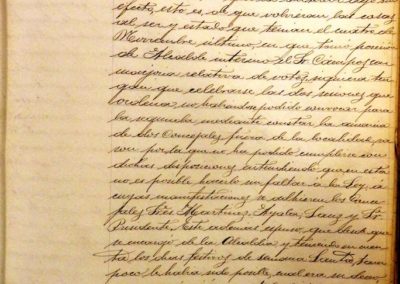 efecto, esto es, de que volvieran las cosas
al ser y estado que tenian el cuatro de
Noviembre último, en que tomó posesion
de Alcalde interino el Sr. Campoy con
mayoria relativa de votos, siquiera ten
gan que celebrarse las dos sesiones que
ordena, no habiendo podido convocar para
la segunda mediante constar la ausencia
de dos Concejales fuera de la localidad, ra
zon por la que no ha podido cumplirse con
dichas disposiciones, entendiendo que en esta
no es posible hacerlo sin faltar á la Ley, á
cuyas manifestaciones se adhieren los Conce
jales Srs Martinez, Ayala, Sanz y Sr.
Presidente. Este ademas expuso, que desde que
se encargó de la Alcaldia y teniendo en cuen
ta los dias festivos de semana Santa, tam
poco le habia sido posible, cual era su deseo,